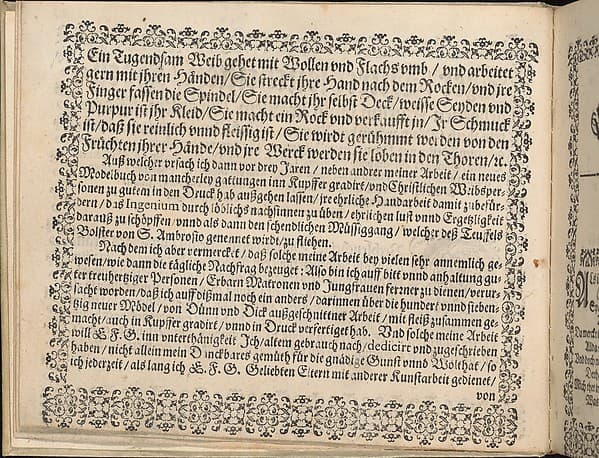 Ein Tugendsam Weib gehet mit Wollen vnd Flachs vmb / vnd arbeitet
gern mit jhren Händen / Sie streckt jhre Hand nach dem Rocken / vnd jre
Finger fassen die Spindel / Sie macht jhr selbst Deck / weisse Seyden vnd
Purpur ist jhr Kleid / Sie macht ein Rock vnd verkaufft in / Jr Schmuck
ist / daß sie reinlich vnnd fleissig ist / Sie wirdt gerühmmt werden von den
Früchten jhrer Hände / vnd jre Werck werden sie loben in den Thoren / ꝛc.
Auß welcher vrsach ich dann vor drey Jaren / neben andrer meiner Arbeit / ein neues
Modelbuch von mancherley gattungen inn Kupffer gradirt / vnd Christlichen Weibsper-
sonen zu gutem in den Druck hab außgehen lassen / jre ehrliche Handarbeit damit zubefür-
dern / das Ingenium durch löblichs nachsinnen zu üben / ehrlichen lust vnnd Ergetzligkeit
darauß zu schöpffen / vnnd als dann den schendlichen Müssiggang / welcher deß Teuffels
Polster von S. Ambrosio genennet wirdt / zu fliehen.
Nach dem ich aber vermercket / daß solche meine Arbeit bey vielen sehr annemlich ge-
wesen / wie dann die tägliche Nachfrag bezeuget: Also bin ich auff bitt vnnd anhaltung gu-
ter treuhertziger Personen / Erbarn Matronen vnd Jungfrauen ferrner zu dienen / verur-
sacht worden / daß ich auff dißmal noch ein anders / darinnen über die hundert vnnd sieben-
tzig neuer Mödel / von Dünn vnd Dick außgeschnittner Arbeit / mit fleiß zusammen ge-
macht / auch in Kupffer gradirt / vnnd in Druck verfertiget hab. Vnd solche meine Arbeit
will E. F. G. inn vnterthänigkeit Ich / altem gebrauch nach / dedicirt vnd zugeschrieben
haben / nicht allein mein Danckbares gemüth für die gnädige Gunst vnnd Wolthat / so
ich jederzeit / als lang ich E. F. G. Geliebten Eltern mit anderer Kunstarbeit gedienet /
von